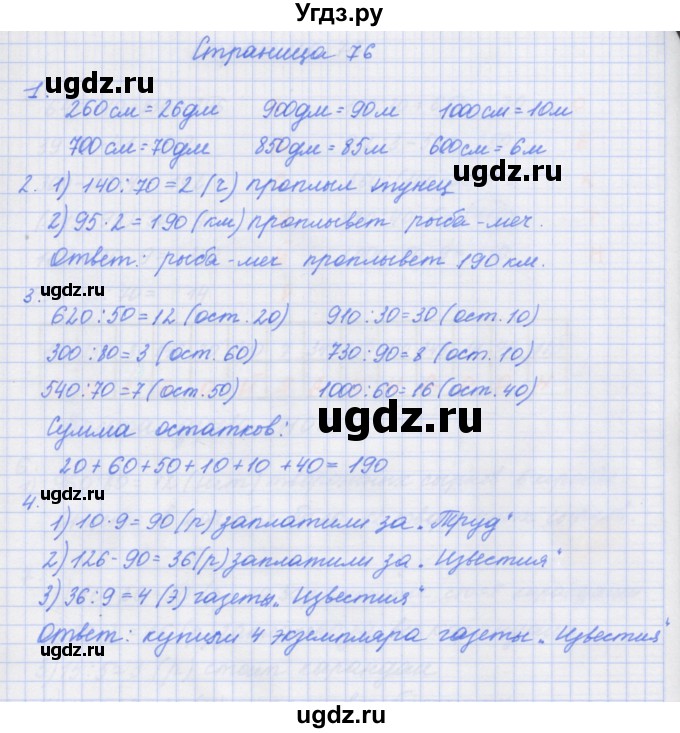 Угдз.ру
Страница 76
ugdz.ru
ugdz.ru
1.
260см = 26дм 900дм = 90м 1000см = 10м
700см = 70дм 850дм = 85м 600см = 6м
ugdz.ru
ugdz.ru
2. 1) 140:70 = 2 (ч) проплыл тунец
2) 95·2 = 190 (км) проплывет рыба-меч.
Ответ: рыба-меч проплывет 190 км.
ugdz.ru
3.
620:50 = 12 (ост. 20) 910:30 = 30 (ост. 10)
300:80 = 3 (ост. 60) 730:90 = 8 (ост. 10)
ugdz.ru
540:70 = 7 (ост. 50) 1000:60 = 16 (ост. 40)
ugdz.ru
Сумма остатков:
20 + 60 + 50 + 10 + 10 + 40 = 190
ugdz.ru
4.
1) 10·9 = 90 (р) заплатили за „Труд“
2) 126 - 90 = 36 (р) заплатили за „Известия“
ugdz.ru
3) 36:9 = 4 (э) газеты „Известия“
Ответ: купили 4 экземпляра газеты „Известия“
ugdz.ru
ugdz.ru
ugdz.ru